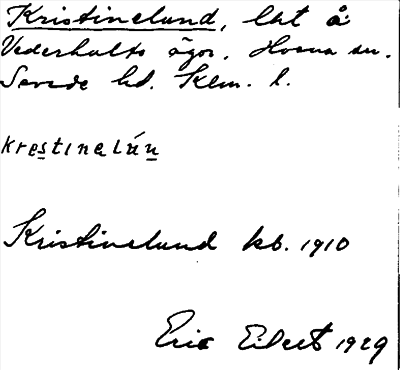 Kristinelund, lht å
Vederhults ägor. Hvena sn.
Sevede hd. Kalm. l.
krestinelún
Kristinelund kb. 1910
Eric Eilert 1929